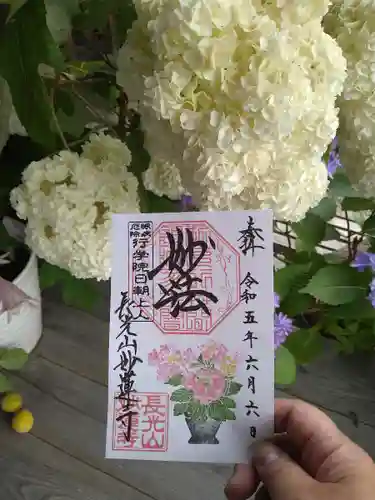 奉
令和五年六月六日
妙法
厄除
行学院日朝上人
長光山妙蓮寺
長光山